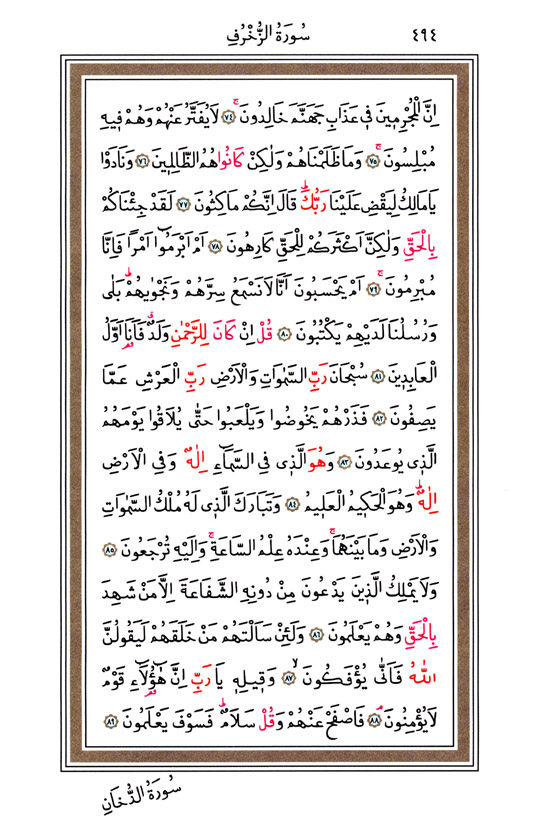 ٤٩٤ سُورَةُ الزُّخْرُفِ
اِنَّ الْمُجْرِمٖينَ فٖى عَذَابِ جَهَنَّمَ خَالِدُونَۚ ﴿٧٤﴾ لَا يُفَتَّرُ عَنْهُمْ وَهُمْ فٖيهِ
مُبْلِسُونَۚ ﴿٧٥﴾ وَمَا ظَلَمْنَاهُمْ وَلٰكِنْ كَانُوا هُمُ الظَّالِمٖينَ ﴿٧٦﴾ وَنَادَوْا
يَا مَالِكُ لِيَقْضِ عَلَيْنَا رَبُّكَۜ قَالَ اِنَّكُمْ مَاكِثُونَ ﴿٧٧﴾ لَقَدْ جِئْنَاكُمْ
بِالْحَقِّ وَلٰكِنَّ اَكْثَرَكُمْ لِلْحَقِّ كَارِهُونَ ﴿٧٨﴾ اَمْ اَبْرَمُٓوا اَمْرًا فَاِنَّا
مُبْرِمُونَۚ ﴿٧٩﴾ اَمْ يَحْسَبُونَ اَنَّا لَا نَسْمَعُ سِرَّهُمْ وَنَجْوٰيهُمْۜ بَلٰى
وَرُسُلُنَا لَدَيْهِمْ يَكْتُبُونَ ﴿٨٠﴾ قُلْ اِنْ كَانَ لِلرَّحْمٰنِ وَلَدٌۗ فَاَنَا۬ اَوَّلُ
الْعَابِدٖينَ ﴿٨١﴾ سُبْحَانَ رَبِّ السَّمٰوَاتِ وَالْاَرْضِ رَبِّ الْعَرْشِ عَمَّا
يَصِفُونَ ﴿٨٢﴾ فَذَرْهُمْ يَخُوضُوا وَيَلْعَبُوا حَتّٰى يُلَاقُوا يَوْمَهُمُ
الَّذٖى يُوعَدُونَ ﴿٨٣﴾ وَهُوَ الَّذٖى فِى السَّمَٓاءِ اِلٰهٌ وَفِى الْاَرْضِ
اِلٰهٌۜ وَهُوَ الْحَكٖيمُ الْعَلٖيمُ ﴿٨٤﴾ وَتَبَارَكَ الَّذٖى لَهُ مُلْكُ السَّمٰوَاتِ
وَالْاَرْضِ وَمَا بَيْنَهُمَاۚ وَعِنْدَهُ عِلْمُ السَّاعَةِۚ وَاِلَيْهِ تُرْجَعُونَ ﴿٨٥﴾
وَلَا يَمْلِكُ الَّذٖينَ يَدْعُونَ مِنْ دُونِهِ الشَّفَاعَةَ اِلَّا مَنْ شَهِدَ
بِالْحَقِّ وَهُمْ يَعْلَمُونَ ﴿٨٦﴾ وَلَئِنْ سَاَلْتَهُمْ مَنْ خَلَقَهُمْ لَيَقُولُنَّ
اللّٰهُ فَاَنّٰى يُؤْفَكُونَۙ ﴿٨٧﴾ وَقٖيلِهٖ يَا رَبِّ اِنَّ هٰٓؤُ۬لَٓاءِ قَوْمٌ
لَا يُؤْمِنُونَۘ ﴿٨٨﴾ فَاصْفَحْ عَنْهُمْ وَقُلْ سَلَامٌۜ فَسَوْفَ يَعْلَمُونَ ﴿٨٩﴾
سُورَةُ الدُّخَانِ